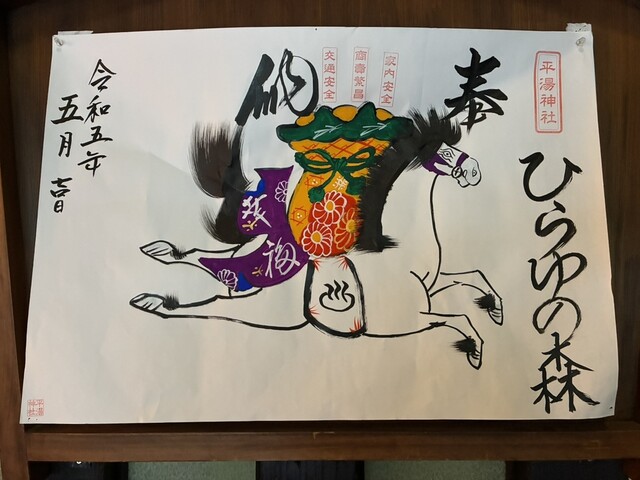 平湯神社
ひらゆの森
奉
納
家内安全
商売繁昌
交通安全
福
令和五年
五月吉日
平湯
神社